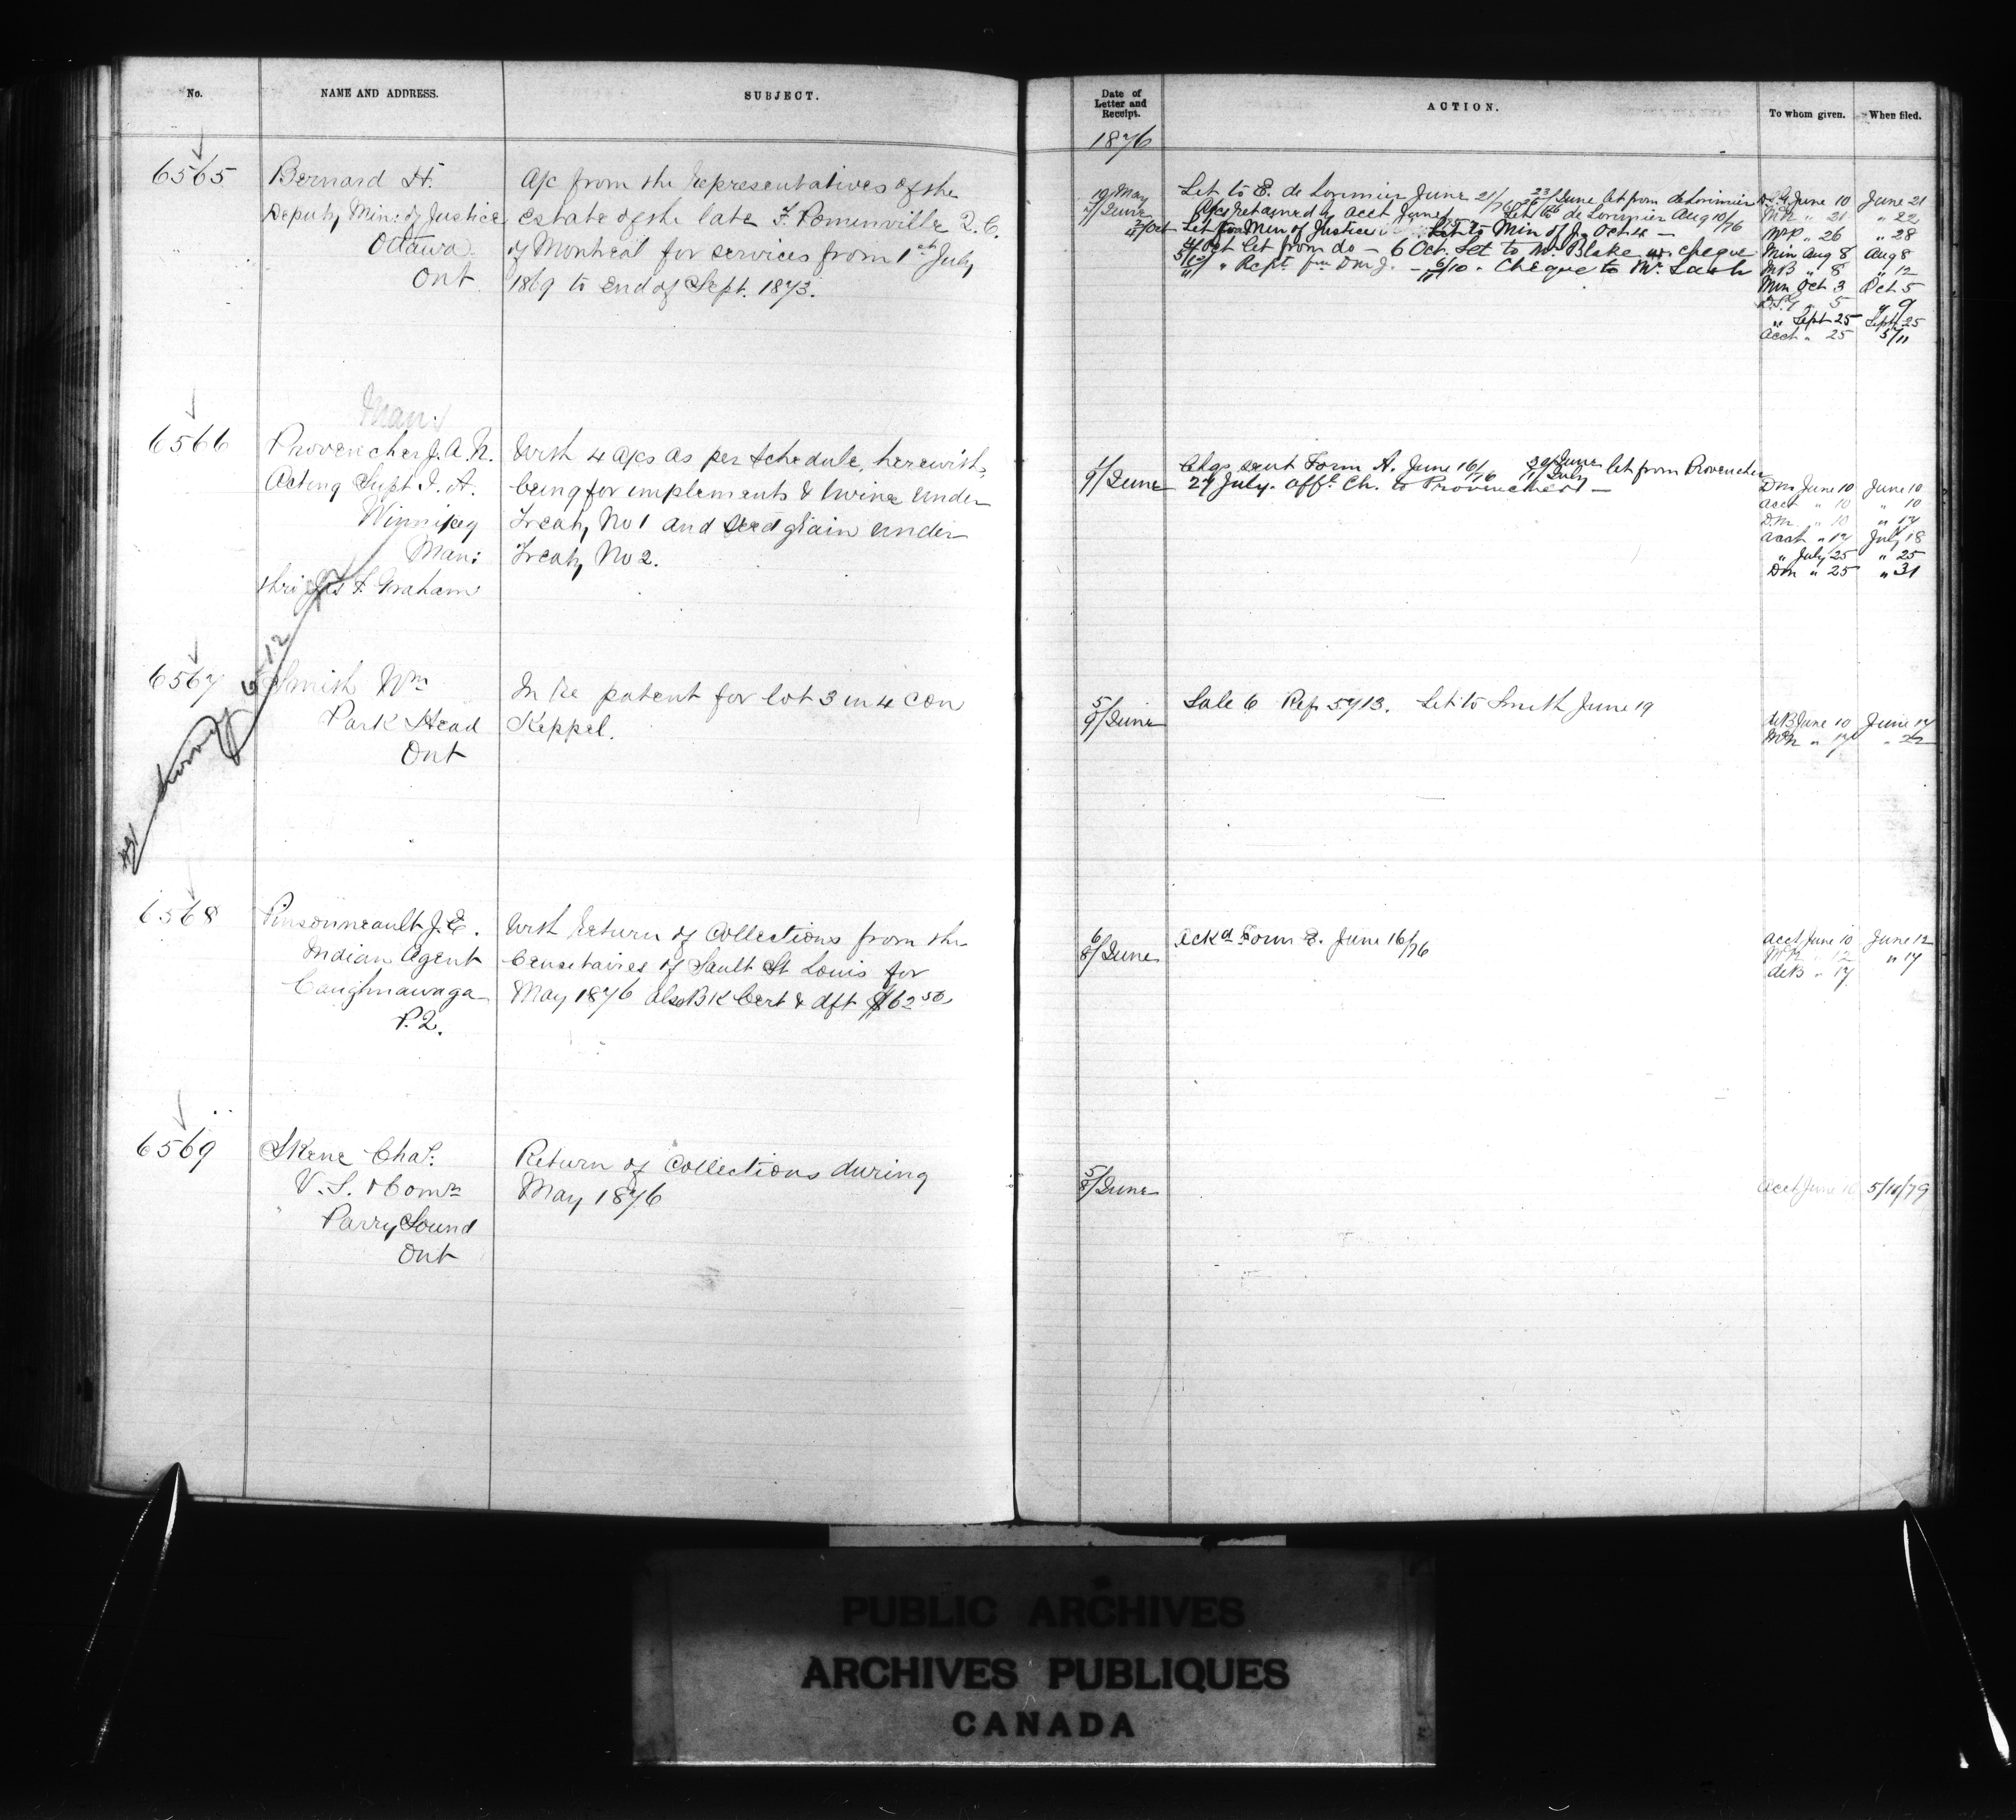 No.
NAME AND ADDRESS.
SUBJECT.
6565
Bernard H.
Deputy Min: of Justice
Ottawa
Ont
A/c from the Representatives of the
estate of the late F. Pominville Q.C.
of Montreal for services from 1st July
1869 to end of Sept. 1873.
Man:
6566
Provencher J. A. N.
Acting Supt I. A.
Winnipeg
Man:
thro Jas F. Graham
With 4 a/cs as per schedule, herewith,
being for implements & twine under
Treaty No 1 and seed grain under
Treaty No 2.
6567
Smith Wm
Park Head
Ont
In re patent for lot 3 in 4 con
Keppel.
6568
Pinsonneault J. E.
Indian Agent
Caughnawaga
P.Q.
With Return of Collections from the
Censitaires of Sault St Louis for
May 1876 also Bk Cert & dft $62 50
6569
Skene Chas.
V. S. & Comr
Parry Sound
Ont
Return of Collections during
May 1876
Date of
Letter and
Receipt.
ACTION.
To whom given.
When filed.
1876
19/ May
7/ June
Let to E. de Lorimier June 21/76 23/ June Let from de Lorimier
A/cs returned by acct June Let to de Lorimier Aug 10/76
Let from Min of Justice Let to Min of J. Oct 4 —
4/ Oct Let from do — 6 Oct. Let to Mr Blake w. cheque
" Rept. fm D m J. — 6/10 - Cheque to Mr Lash
D.S.G June 10 June 21
" 21 " 22
" 26 " 28
Min Aug 8 Aug 8
MB " 8 " 12
Min Oct 3 Oct 5
D.S.G " 5 " 9
" Sept 25 Sept 25
Acct " 25 5/11
1/
9/ June
Chqs sent Form A. June 16/76 30/ June 11/ July let from Provencher
27 July. Offl. Ch. to Provencher —
Dm June 10 June 10
acct " 10 " 10
D.m. " 10 " 17
acct " 17 July 18
" July 25 " 25
Dm " 25 " 31
5/
9/ June
Sale 6 Ref 5713. Let to Smith June 19
deB June 10 June 17
" 17 " 22
6/
8/ June
Ackd Form E. June 16/76
acct June 10 June 12
" 12 " 17
deB " 17
5/
8/ June
acct June 10 5/11/79
PUBLIC ARCHIVES
ARCHIVES PUBLIQUES
CANADA